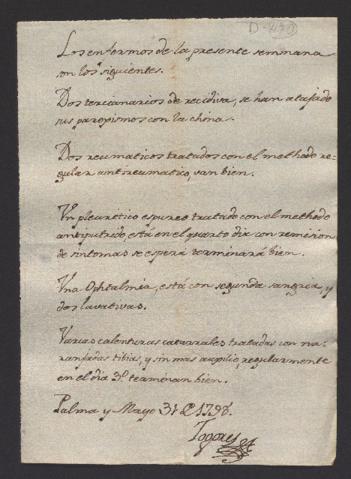 Los enfermos de la presente seminana
son los siguientes.
Dos tercianarios de recidiva, se han atajado
sus paropismos con la china.
Dos reumaticos tratados con el methodo re-
gular antreumatico, van bien.
Un pleuritico espureo tratado con el methodo
antiputrido, está en el quarto dia con remision
de sintomas se espera terminará bien.
Una Ophtalmia, está con segunda sangria, y
dos lavativas.
Varias calenturas catarrales tratadas con na-
ranjadas tibias, y sin mas auxilio, regularmente
en el dia 3º terminan bien.
Palma y Mayo 31 de 1798.
Togores